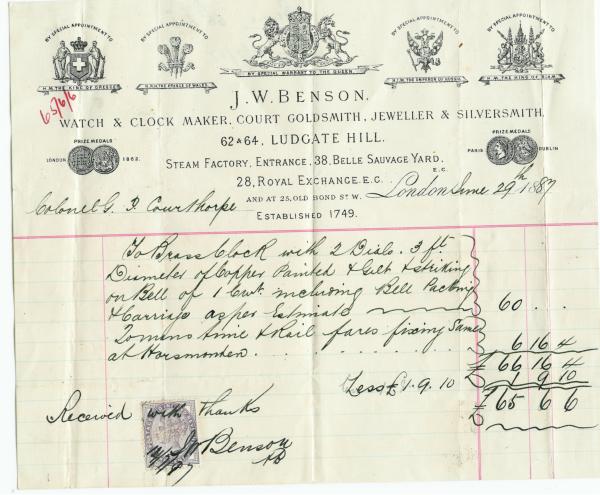 BY SPECIAL APPOINTMENT TO
H.M. THE KING OF GREECE
BY SPECIAL APPOINTMENT TO
H.R.H. THE PRINCE OF WALES
BY SPECIAL WARRANT TO THE QUEEN
BY SPECIAL APPOINTMENT TO
H.I.M. THE EMPEROR OF RUSSIA
BY SPECIAL APPOINTMENT TO
H.M. THE KING OF SIAM
65/6/6
J. W. BENSON,
WATCH & CLOCK MAKER, COURT GOLDSMITH, JEWELLER & SILVERSMITH,
62 & 64, LUDGATE HILL.
PRIZE MEDALS
LONDON 1862.
PRIZE MEDALS
PARIS DUBLIN
STEAM FACTORY, ENTRANCE, 38, BELLE SAUVAGE YARD.
28, ROYAL EXCHANGE. E.C. E.C.
AND AT 25, OLD BOND ST W. London June 29th 1887
Colonel G. Courthorpe
ESTABLISHED 1749.
To Brass Clock with 2 Dials. 3 ft
Diameter of Copper Painted & Gilt & striking
on Bell of 1 Cwt. including Bell Packing
& Carriage as per Estimate 60 . .
2 mens time & Rail fares fixing Same
at Horsmonden. 6 16 4
£ 66 16 4
Less £1. 9. 10 1 9 10
£ 65 6 6
Received with Thanks
JW Benson